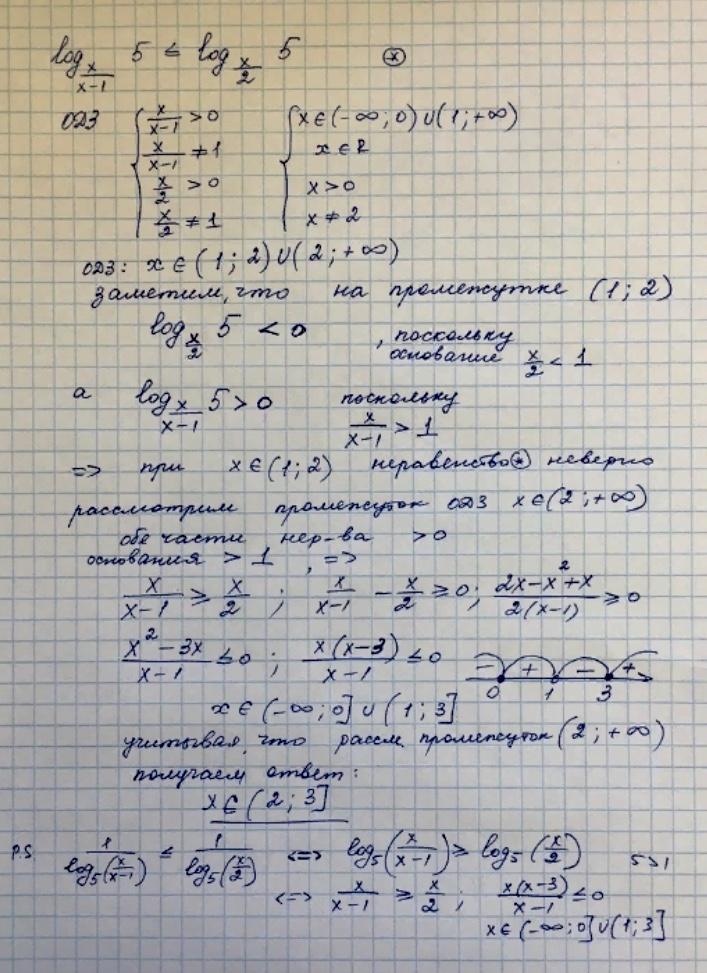 log_{x/(x-1)} 5 ≤ log_{x/2} 5 (*)
ОДЗ { x/(x-1) > 0 { x ∈ (-∞; 0) ∪ (1; +∞)
x/(x-1) ≠ 1 x ∈ R
x/2 > 0 x > 0
x/2 ≠ 1 x ≠ 2
ОДЗ: x ∈ (1; 2) ∪ (2; +∞)
заметим, что на промежутке (1; 2)
log_{x/2} 5 < 0 , поскольку
основание x/2 < 1
а log_{x/(x-1)} 5 > 0 поскольку
x/(x-1) > 1
=> при x ∈ (1; 2) неравенство (*) неверно
рассмотрим промежуток ОДЗ x ∈ (2; +∞)
обе части нер-ва > 0
основания > 1 , =>
x/(x-1) ≥ x/2 ; x/(x-1) - x/2 ≥ 0; (2x-x²+x)/(2(x-1)) ≥ 0
(x²-3x)/(x-1) ≤ 0 ; x(x-3)/(x-1) ≤ 0 - + - +
0 1 3
x ∈ (-∞; 0] ∪ (1; 3]
учитывая, что рассм. промежуток (2; +∞)
получаем ответ:
x ∈ (2; 3]
P.S. 1/log₅(x/(x-1)) ≤ 1/log₅(x/2) <=> log₅(x/(x-1)) ≥ log₅(x/2) 5>1
<=> x/(x-1) ≥ x/2 ; x(x-3)/(x-1) ≤ 0
x ∈ (-∞; 0] ∪ (1; 3]